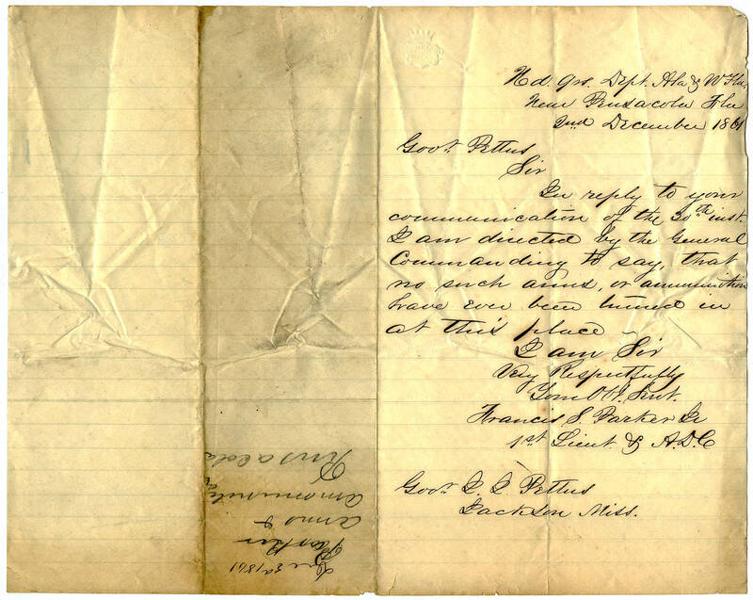 Hd. Qrs. Dept. Ala & W Fla,
Near Pensacola Fla
2nd December 1861
Govr. Pettus
Sir
In reply to your
communication of the 30th inst.
I am directed by the General
Commanding to say, that
no such arms, or ammunition
have ever been turned in
at this place
I am Sir
Very Respectfully
Your Obt. Servt.
Francis S. Parker Jr
1st Lieut. & A.D.C
Govr. J. J. Pettus
Jackson Miss.
Dec 2d, 1861
Parker
arms &
amonunition